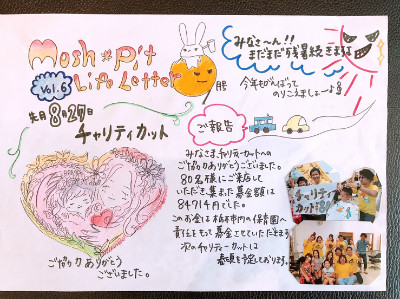 Mosh#Pit
Life Letter
Vol.6
9月号
みなさ〜ん!!
まだまだ残暑続きますね
今年もがんばって
のりこえましょーよ
先日8月27日
チャリティカット
ご報告
みなさま チャリティーカットへの
ご協力ありがとうございました。
80名様にご来店して
いただき、集まった募金額は
84914円でした。
このお金は栃木市内の保育園へ
責任をもって募金させていただきます
次のチャリティーカットは
春頃を予定しております。
ご協力ありがとう
ございました。
チャリティー